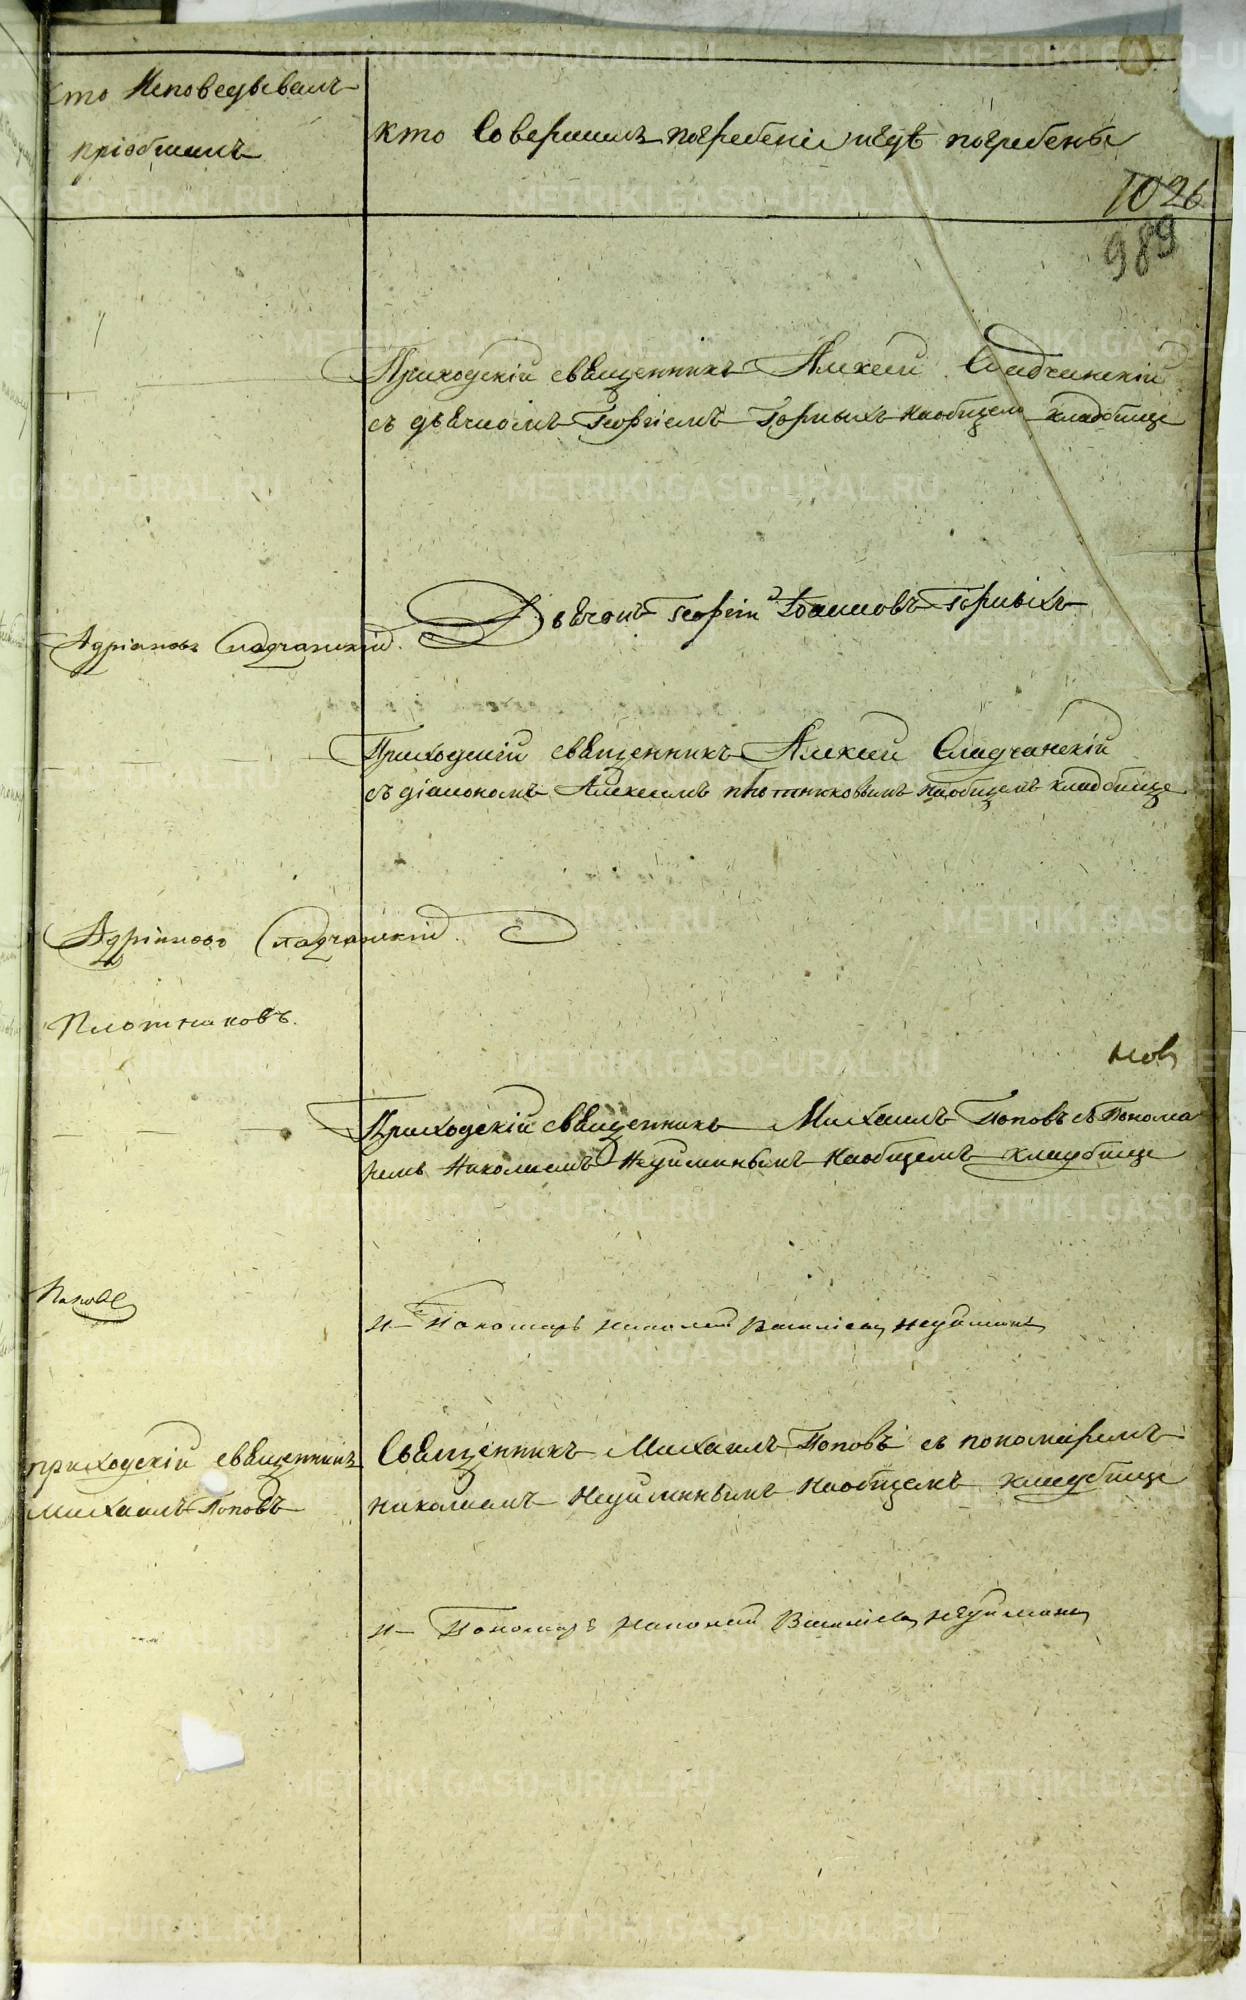 кто Исповедывалъ
пріобшилъ
кто Совершилъ погребеніе и гдѣ погребены
1026
989
Приходскій священникъ Алексей Сладчанскій
съ дьячкомъ Георгіемъ Горныхъ на общемъ кладбище
Дьячокъ Георгій Іоанновъ Горныхъ
Адріановъ Сладчанскій.
Приходскій священникъ Алексей Сладчанскій
съ діакономъ Алексеемъ Плотниковымъ на общемъ кладбище
Адріановъ Сладчанскій
Плотниковъ.
нов
Приходскій священникъ Михаилъ Поповъ съ Понома
ремъ Николаемъ Неуйминымъ на общемъ кладбище
Поповъ
и Пономарь Николай Васильевъ Неуйминъ
приходскій священникъ
Михаилъ Поповъ
Священникъ Михаилъ Поповъ съ пономаремъ
Николаемъ Неуйминымъ на общемъ кладбище
и Пономарь Николай Васильевъ Неуйминъ
METRIKI.GASO-URAL.RU